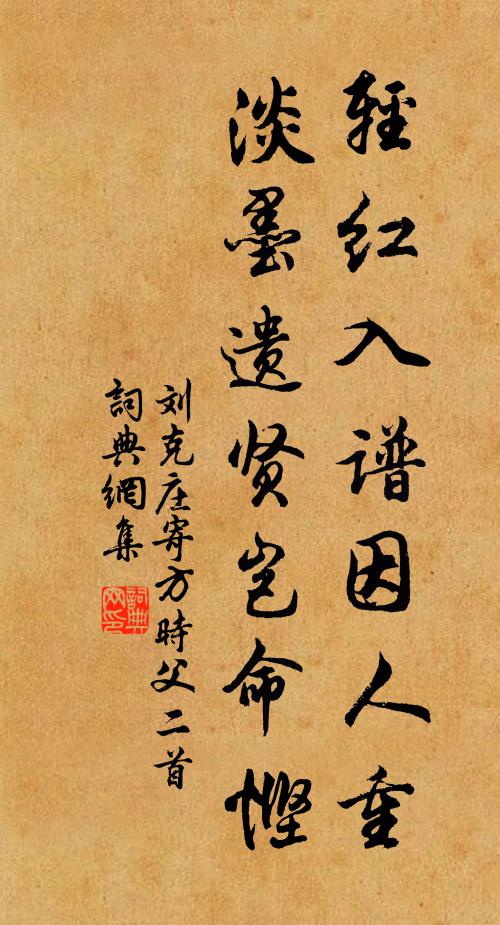 輕红入谱因人重
淡墨遗贤岂命慳
刘克庄寄方時父二首
詞典網集
詞典网印